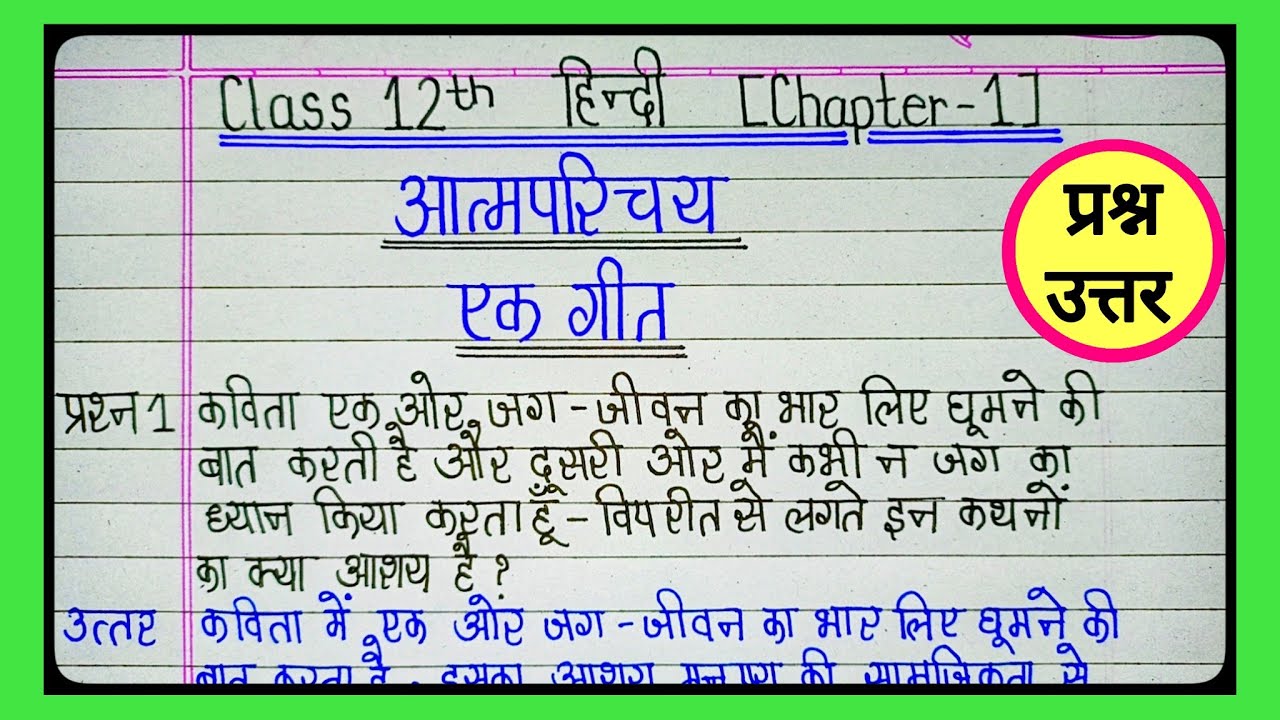 Class 12th हिन्दी [Chapter-1]
आत्मपरिचय
एक गीत
प्रश्न
उत्तर
प्रश्न 1 कविता एक ओर जग-जीवन का भार लिए घूमने की
बात करती है और दूसरी ओर मैं कभी न जग का
ध्यान किया करता हूँ - विपरीत से लगते इन कथनों
का क्या आशय है ?
उत्तर कविता में एक ओर जग-जीवन का भार लिए घूमने की
बात करता है . इसका आशय मनुष्य की सामाजिकता से